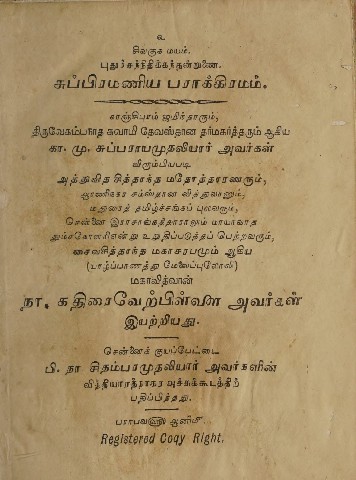 உ
சிவகுக மயம்.
புதுச்சந்நிதிக்கந்தன்றுணை.
சுப்பிரமணிய பராக்கிரமம்.
காஞ்சிபுரம் ஜமீந்தாரும்,
திருவேகம்பநாத சுவாமி தேவஸ்தான தர்மகர்த்தரும் ஆகிய
கா. மு. சுப்பராயமுதலியார் அவர்கள்
விரும்பியபடி
அத்துவித சித்தாந்த மதோத்தாரணரும்,
ஆரணிநகர சமஸ்தான வித்துவானும்,
மதுரைத் தமிழ்ச்சங்கப் புலவரும்,
சென்னை இராசாங்கத்தாராலும் மாயாவாத
தும்சகோளரியென்று உறுதிப்படுத்தப் பெற்றவரும்,
சைவசித்தாந்த மகாசரபமும் ஆகிய
(யாழ்ப்பாணத்து மேலைப்புலோலி)
மகாவித்வான்
நா. கதிரைவேற்பிள்ளை அவர்கள்
இயற்றியது.
சென்னைக் குயப்பேட்டை
பி. நா சிதம்பரமுதலியார் அவர்களின்
வித்தியாரத்நாகர அச்சுக்கூடத்திற்
பதிப்பித்தது.
பராபவ௵ ஆனி௴
Registered Copy Right.